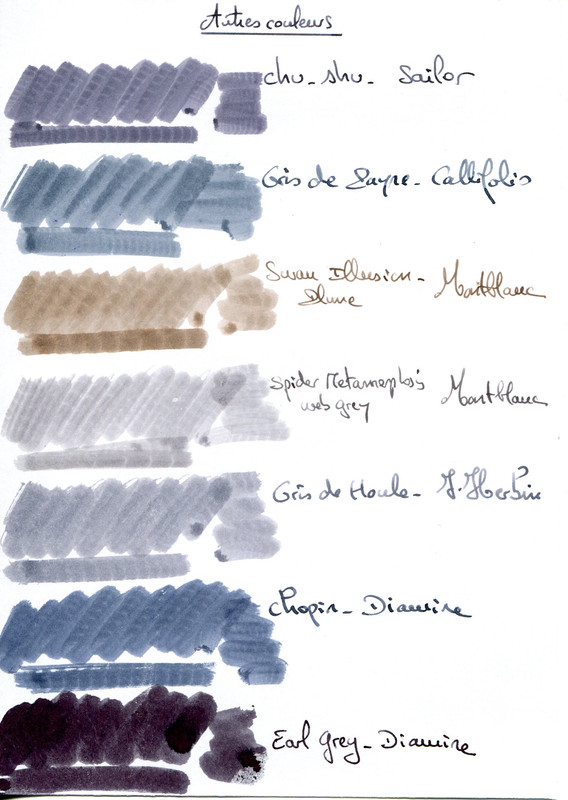 Autres couleurs
chu - shu - Sailor
Gris de Payne - Callifolio
Swan Illusion - Montblanc
Plume
Spider Metamorphosis Montblanc
web grey
Gris de Houle - J. Herbin
Chopin - Diamine
Earl Grey - Diamine